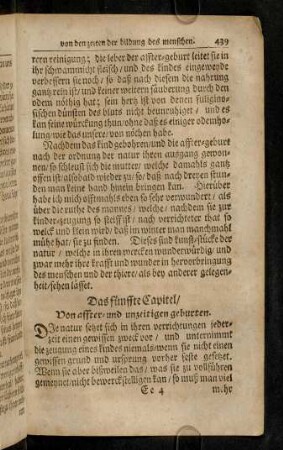 von den zeiten der bildung des menschen. 439
rern reinigung; die leber der affter-geburt leitet sie in
ihr schwammicht fleisch/ und des kindes eingeweyde
verbessern sie noch/ so daß nach diesem die nahrung
gantz rein ist/ und keiner weitern säuberung durch den
odem nöthig hat; sein hertz ist von denen fuliginos-
sischen dünsten des bluts nicht beunruhiget/ und es
kan seine würckung thun/ ohne daß es einiger odemho-
lung/ wie das unsere/ von nöthen habe.
Nachdem das kind gebohren/ und die affter-geburt
nach der ordnung der natur ihren ausgang gewon-
nen/ so schleust sich die mutter/ welche damahls gantz
offen ist/ alsobald wieder zu/ so/ daß nach dreyen stun-
den man keine hand hinein bringen kan. Hierüber
habe ich mich offtmahls eben so sehr verwundert/ als
über die ruthe des mannes/ welche/ nachdem sie zur
kinder-zeugung so steiff ist/ nach verrichteter that so
welck und klein wird/ daß im winter man manchmahl
mühe hat/ sie zu finden. Dieses sind kunst-stücke der
natur/ welche in ihren wercken wunderwürdig/ und
zwar mehr ihre krafft und wunder in hervorbringung
des menschen und der thiere/ als bey anderer gelegen-
heit/ sehen lässet.
Das fünffte Capitel/
Von affter- und unzeitigen geburten.
Die natur setzt sich in ihren verrichtungen jeder-
zeit einen gewissen zweck vor/ und unternimmt
die zeugung eines kindes niemals/ wenn sie nicht einen
gewissen grund und ursprung vorher feste gesetzet.
Wenn sie aber bißweilen das/ was sie zu vollführen
gemeynet/ nicht bewerckstelligen kan/ so muß man viel
Ee 4 mehr